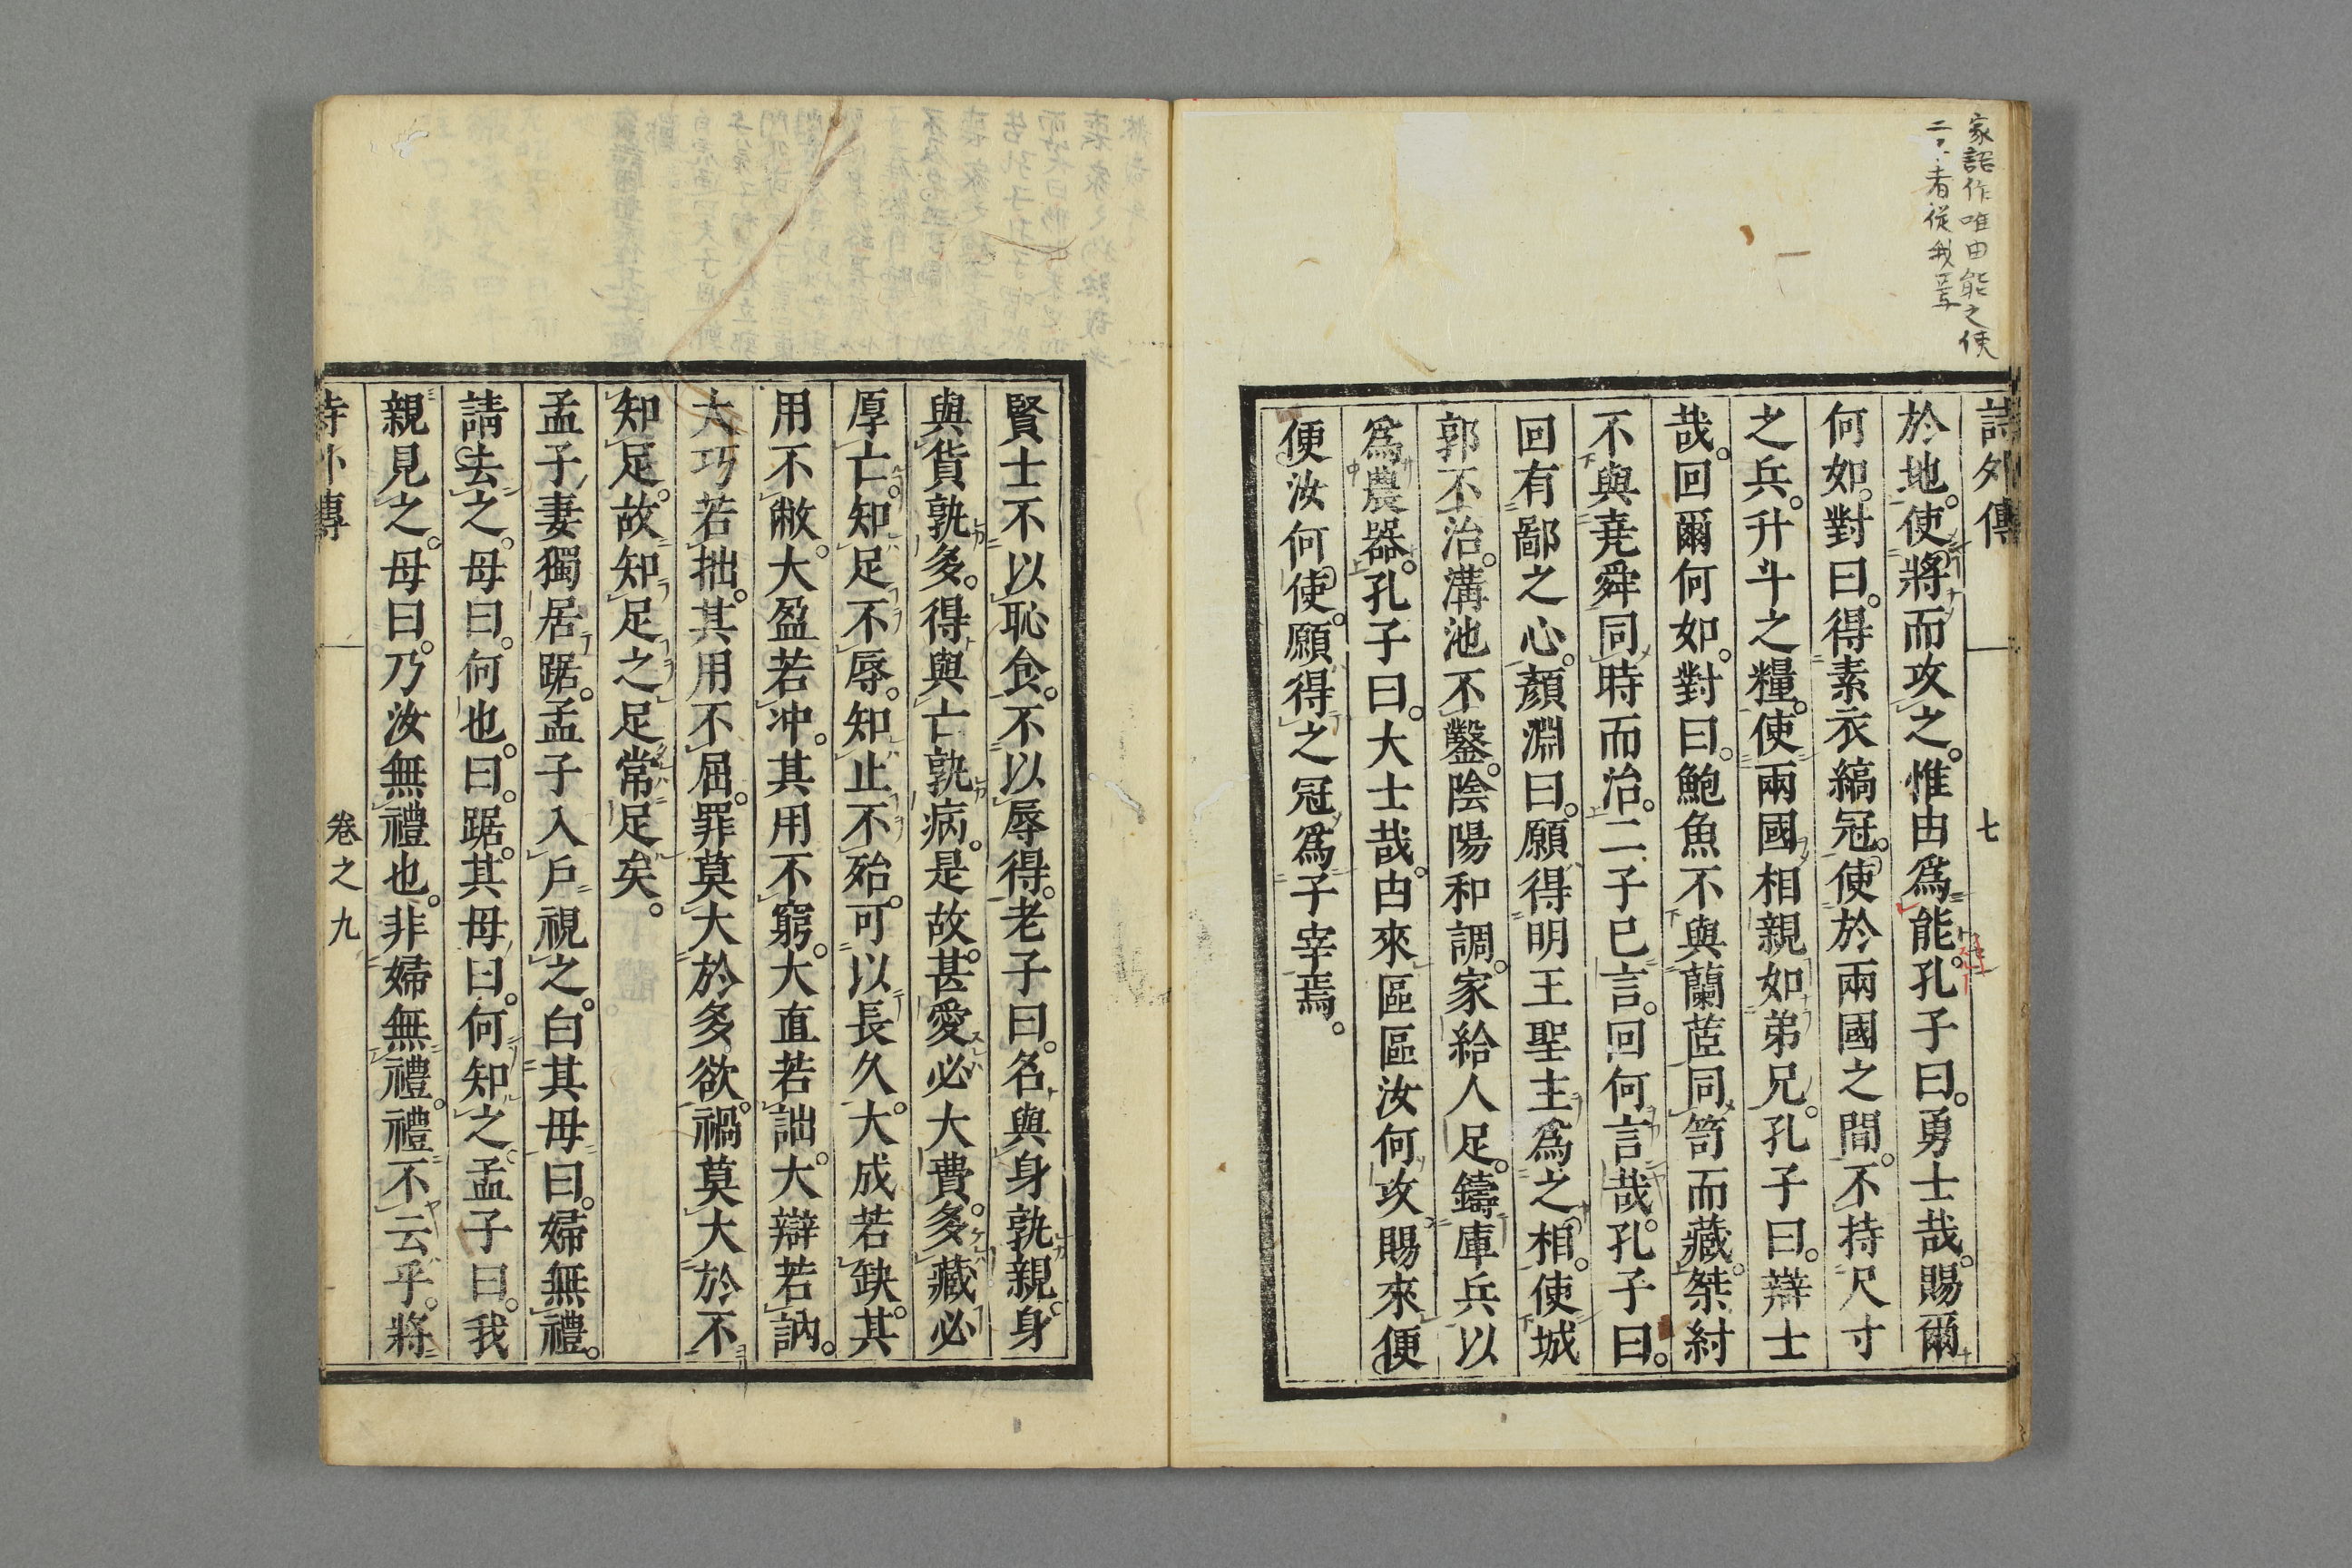 家語作唯由能之使
者從我焉
詩外傳
七
於地。使將而攻之。惟由爲能。孔子曰。勇士哉。賜爾
何如。對曰。得素衣縞冠。使於兩國之間。不持尺寸
之兵。升斗之糧。使兩國相親如弟兄。孔子曰。辯士
哉。回爾何如。對曰。鮑魚不與蘭茝同笥而藏。桀紂
不與堯舜同時而治。二子已言。回何言哉。孔子曰。
回有鄙之心。顏淵曰。願得明王聖主爲之相。使城
郭不治。溝池不鑿。陰陽和調。家給人足。鑄庫兵以
爲農器。孔子曰。大士哉。由來區區汝何攻賜來便
便汝何使。願得之冠爲子宰焉。
賢士不以恥食。不以辱得。老子曰。名與身孰親。身
與貨孰多。得與亡孰病。是故。甚愛必大費。多藏必
厚亡。知足不辱。知止不殆。可以長久。大成若缺。其
用不敝。大盈若冲。其用不窮。大直若詘。大辯若訥。
大巧若拙。其用不屈。罪莫大於多欲。禍莫大於不
知足。故知足之足常足矣。
孟子妻獨居踞。孟子入戶視之。白其母曰。婦無禮。
請去之。母曰。何也。曰。踞。其母曰。何知之。孟子曰。我
親見之。母曰。乃汝無禮也。非婦無禮。禮不云乎。將
詩外傳
卷之九